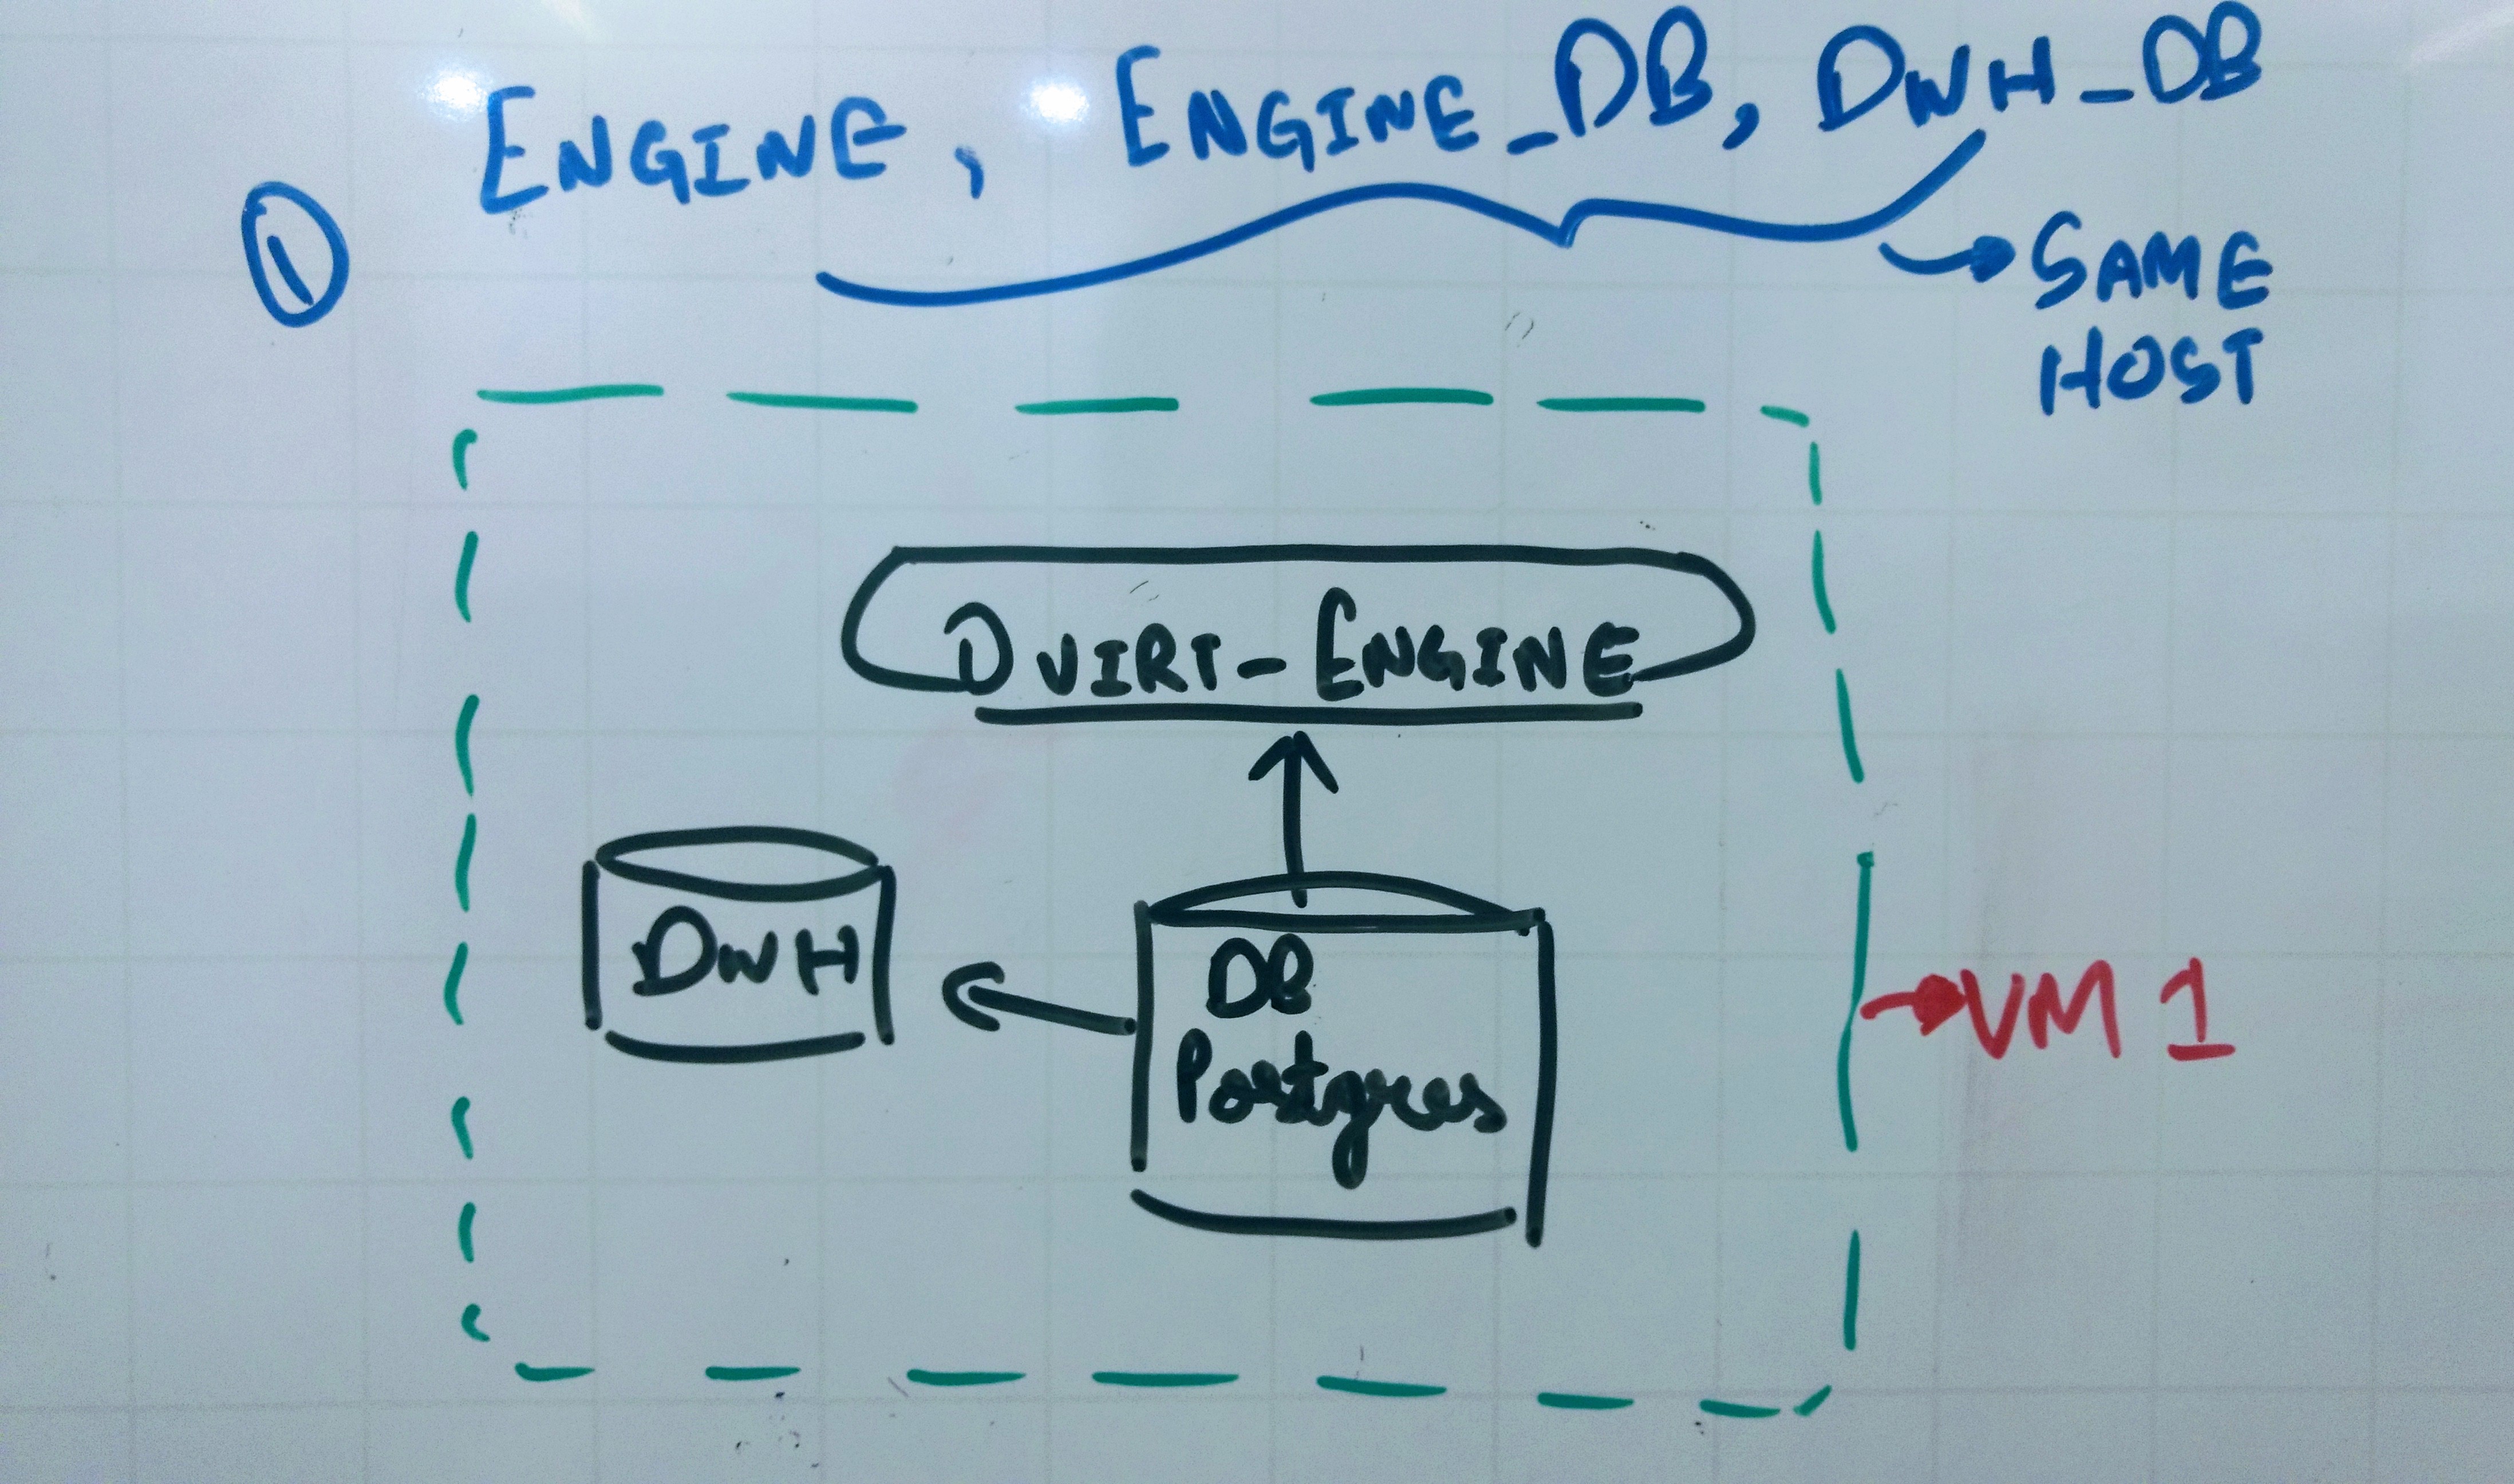 ENGINE, ENGINE_DB, DWH_DB
1
SAME
HOST
OVIRT-ENGINE
DWH
DB
Postgres
VM 1